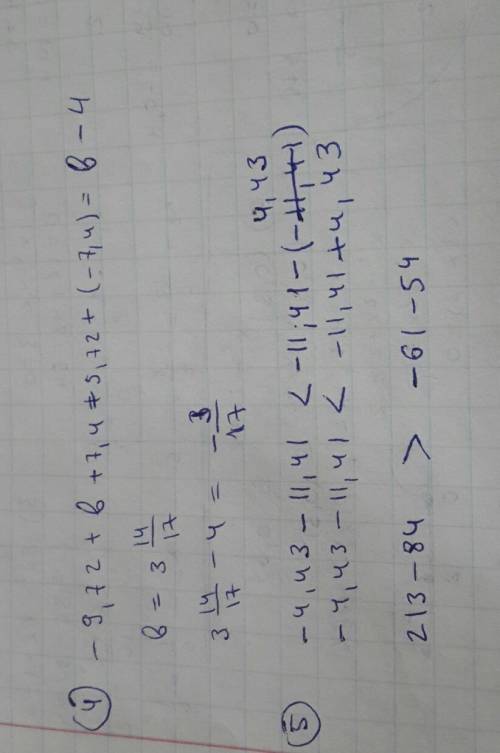 ④ - 9,72 + в + 7,4 + 5,72 + (-7,4) = в - 4
в = 3 14/17
3 14/17 - 4 = - 3/17
4,43
⑤ - 4,43 - 11,41 < - 11,41 - (-11,41)
- 4,43 - 11,41 < - 11,41 + 4,43
213 - 84 > - 61 - 54